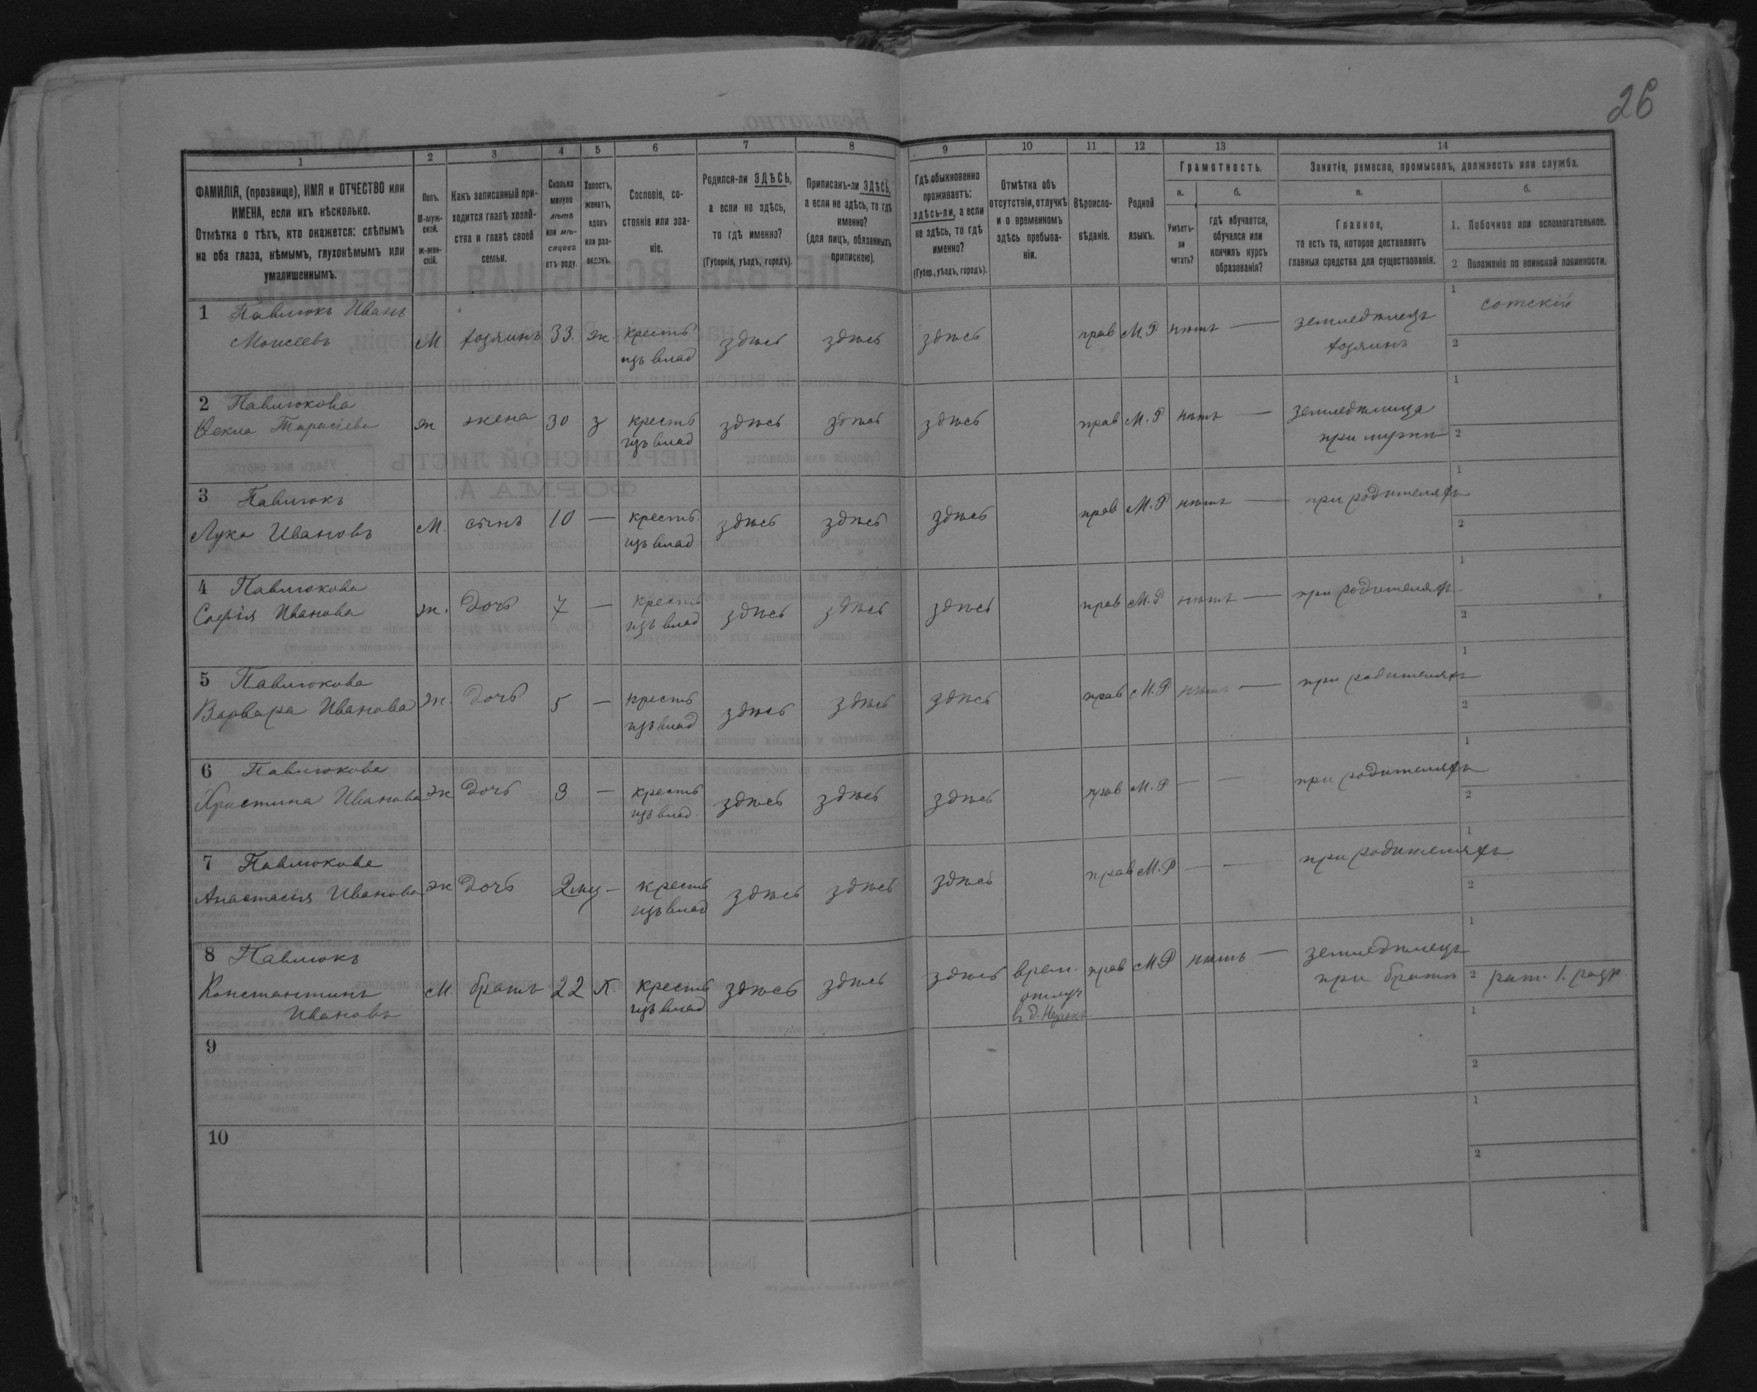 26
1 2 3 4 5 6 7 8 9 10 11 12 13 14
ФАМИЛІЯ, (прозвище), ИМЯ и ОТЧЕСТВО или
ИМЕНА, если ихъ нѣсколько.
Отмѣтка о тѣхъ, кто окажется: слѣпымъ
на оба глаза, нѣмымъ, глухонѣмымъ или
умалишеннымъ.
Полъ.
М-муж-
ской.
Ж-жен-
скій.
Какъ записанный при-
ходится главѣ хозяй-
ства и главѣ своей
семьи.
Сколько
минуло
лѣтъ
или мѣ-
сяцевъ
отъ роду.
Холостъ,
женатъ,
вдовъ
или раз-
веденъ.
Сословіе, со-
стояніе или зва-
ніе.
Родился-ли ЗДѢСЬ,
а если не здѣсь,
то гдѣ именно?
(Губернія, уѣздъ, городъ).
Приписанъ-ли ЗДѢСЬ,
а если не здѣсь, то гдѣ
именно?
(для лицъ, обязанныхъ
припискою).
Гдѣ обыкновенно
проживаетъ:
здѣсь-ли, а если
не здѣсь, то гдѣ
именно?
(Губер., уѣздъ, городъ).
Отмѣтка объ
отсутствіи, отлучкѣ
и о временномъ
здѣсь пребыва-
ніи.
Вѣроиспо-
вѣданіе.
Родной
языкъ.
Грамотность.
а. б.
Умѣетъ-
ли
читать?
гдѣ обучается,
обучался или
кончилъ курсъ
образованія?
Занятіе, ремесло, промыселъ, должность или служба.
а. б.
Главное,
то есть то, которое доставляетъ
главныя средства для существованія.
1. Побочное или вспомогательное.
2 Положеніе по воинской повинности.
1 Павлюкъ Иванъ
Моисеевъ М хозяинъ 33. ж. крестъ здѣсь здѣсь здѣсь прав М.Р нѣтъ — земледѣлецъ 1 сотскій
изъ влад хозяинъ 2
2 Павлюкова
Ѳекла Тарасіева ж жена 30 з крестъ здѣсь здѣсь здѣсь прав М.Р нѣтъ — земледѣлица 1
изъ влад при мужи 2
3 Павлюкъ
Лука Ивановъ М. сынъ 10 — крестъ здѣсь здѣсь здѣсь прав М.Р нѣтъ — при родителяхъ 1
изъ влад 2
4 Павлюкова
Софія Иванова ж. дочь 7 — крестъ здѣсь здѣсь здѣсь прав М.Р нѣтъ — при родителяхъ 1
изъ влад 2
5 Павлюкова
Варвара Иванова ж. дочь 5 — крестъ здѣсь здѣсь здѣсь прав М.Р нѣтъ — при родителяхъ 1
изъ влад 2
6 Павлюкова
Христина Иванова ж дочь 3 — крестъ здѣсь здѣсь здѣсь прав М.Р — — при родителяхъ 1
изъ влад 2
7 Павлюкова
Анастасія Иванова ж дочь 2 мц — крестъ здѣсь здѣсь здѣсь прав М.Р — — при родителяхъ 1
изъ влад 2
8 Павлюкъ
Константинъ М. братъ 22 х. крестъ здѣсь здѣсь здѣсь врем. прав М.Р нѣтъ — земледѣлецъ 1
Ивановъ изъ влад отлуч при братѣ 2 рат. 1. разр
в д.
9 1
2
10 1
2